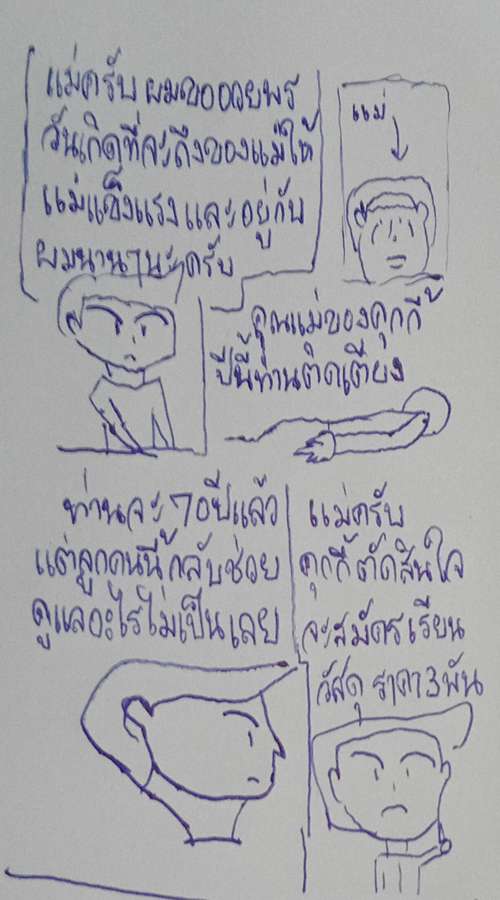 แม่ครับ ผมขออวยพร
วันเกิดที่จะถึงของแม่ให้
แม่แข็งแรงและอยู่กับ
ผมนานๆนะครับ
แม่
คุณแม่ของคุกกี้
ปีนี้ท่านติดเตียง
ท่านจะ 70ปีแล้ว
แต่ลูกคนนี้กลับช่วย
ดูแลอะไรไม่เป็นเลย
แม่ครับ
คุกกี้ตัดสินใจ
จะสมัครเรียน
วัสดุ ราคา3พัน